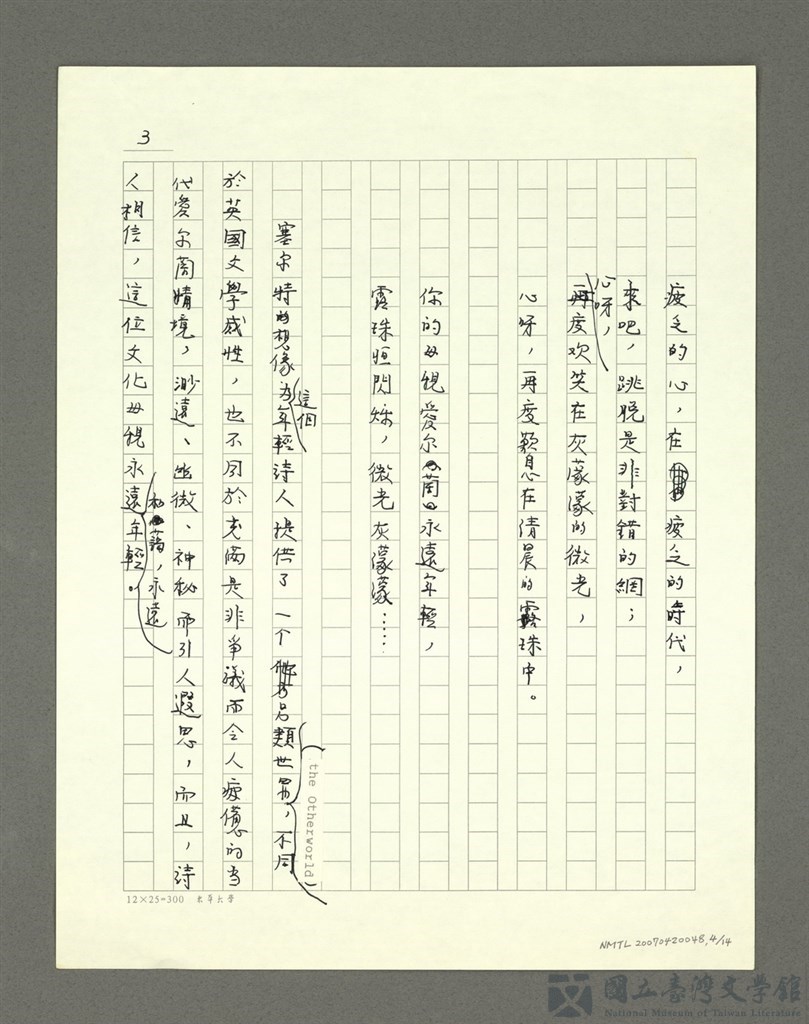 3
疲乏的心，在疲乏的時代，
來吧，跳脫是非對錯的網；
心呀，
再度欢笑在灰濛濛的微光，
心呀，再度歎息在清晨的露珠中。
你的母親愛尔蘭永遠年輕，
露珠恒閃爍，微光灰濛濛……
塞尔特的想像為這個年輕詩人提供了一个另類世界(the Otherworld)，不同
於英國文學感性，也不同於充滿是非爭議而令人疲憊的当
代愛尔蘭情境，渺遠、幽微、神秘而引人遐思，而且，詩
人相信，這位文化母親永遠年輕，永遠
12×25=300 東華大學
NMTL 20070420048, 4/14
國立臺灣文學館
National Museum of Taiwan Literature